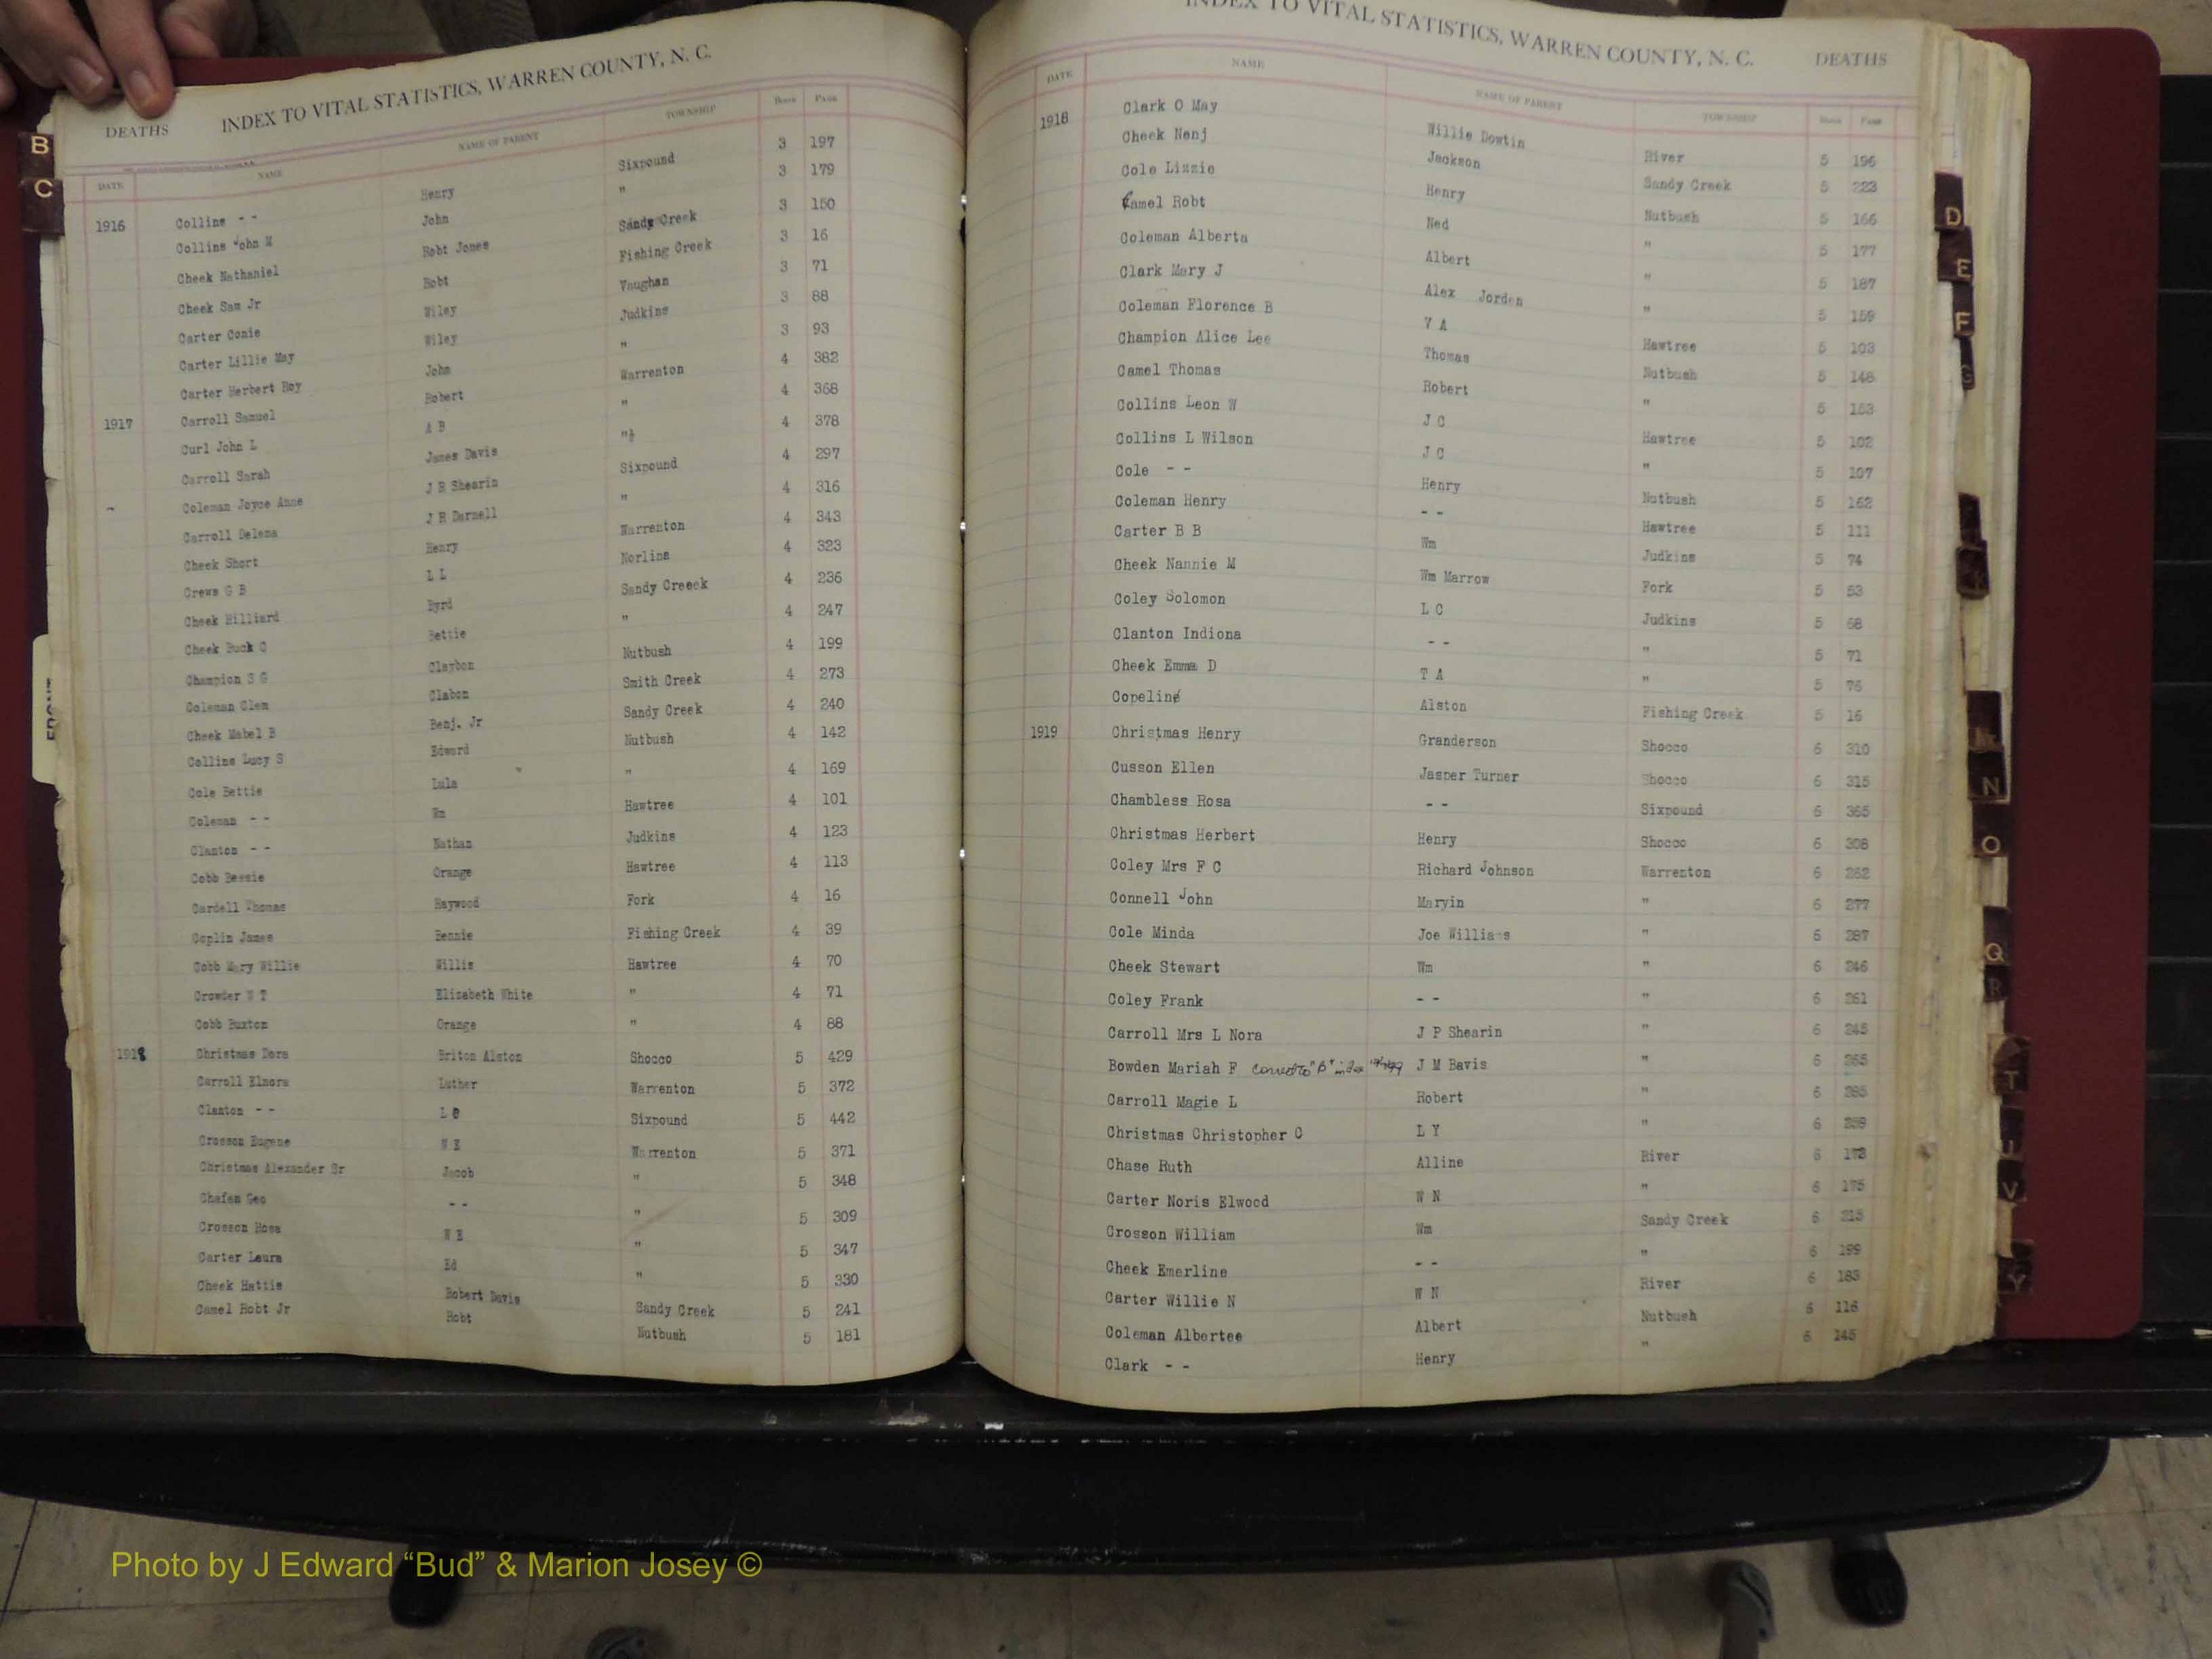 INDEX TO VITAL STATISTICS, WARREN COUNTY, N. C.
DEATHS
DATE NAME NAME OF PARENT TOWNSHIP BOOK PAGE
1916 Collins - - Henry Sixpound 3 197
Collins John M John " 3 179
Cheek Nathaniel Robt Jones Sandy Creek 3 150
Cheek Sam Jr Robt Fishing Creek 3 16
Carter Conie Wiley Vaughan 3 71
Carter Lillie May Wiley Judkins 3 88
Carter Herbert Roy John " 3 93
1917 Carroll Samuel Robert Warrenton 4 382
Curl John L A B " 4 368
Carroll Sarah James Davis " 4 378
Coleman Joyce Anne J R Shearin Sixpound 4 297
Carroll Delema J R Darnell " 4 316
Cheek Short Henry Warrenton 4 343
Crews G B L L Norlina 4 323
Cheek Hilliard Byrd Sandy Creeek 4 236
Cheek Buck C Bettie " 4 247
Champion S G Claybon Nutbush 4 199
Coleman Clem Clabon Smith Creek 4 273
Cheek Mabel B Benj. Jr Sandy Creek 4 240
Collins Lucy S Edward Nutbush 4 142
Cole Bettie Lula " 4 169
Coleman - - Wm Hawtree 4 101
Clanton - - Nathan Judkins 4 123
Cobb Bessie Orange Hawtree 4 113
Cardell Thomas Haywood Fork 4 16
Coplin James Bennie Fishing Creek 4 39
Cobb Mary Willie Willis Hawtree 4 70
Crowder W T Elizabeth White " 4 71
Cobb Buxton Orange " 4 88
1918 Christmas Dora Briton Alston Shocco 5 429
Carroll Elnora Luther Warrenton 5 372
Clanton - - L Sixpound 5 442
Crosson Eugene W E Warrenton 5 371
Christmas Alexander Sr Jacob " 5 348
Shafen Geo - - " 5 309
Crosson Rosa W E " 5 347
Carter Laura Ed " 5 330
Cheek Hattie Robert Davis Sandy Creek 5 241
Camel Robt Jr Robt Nutbush 5 181
INDEX TO VITAL STATISTICS, WARREN COUNTY, N. C.
DEATHS
DATE NAME NAME OF PARENT TOWNSHIP BOOK PAGE
1918 Clark O May Willie Dowtin River 5 196
Cheek Nenj Jackson Sandy Creek 5 223
Cole Lizzie Henry Nutbush 5 166
Camel Robt Ned " 5 177
Coleman Alberta Albert " 5 187
Clark Mary J Alex Jorden " 5 159
Coleman Florence B 7 A Hawtree 5 103
Champion Alice Lee Thomas Nutbush 5 148
Camel Thomas Robert " 5 153
Collins Leon W J C Hawtree 5 102
Collins L Wilson J C " 5 107
Cole - - Henry Nutbush 5 162
Coleman Henry - - Hawtree 5 111
Carter B B Wm Judkins 5 74
Cheek Nannie M Wm Marrow Fork 5 53
Coley Solomon L C Judkins 5 68
Clanton Indiona - - " 5 71
Cheek Emma D T A " 5 76
Copeline Alston Fishing Creek 5 16
1919 Christmas Henry Granderson Shocco 6 310
Cusson Ellen Jasper Turner Shocco 6 315
Chambless Rosa - - Sixpound 6 365
Christmas Herbert Henry Shocco 6 308
Coley Mrs F C Richard Johnson Warrenton 6 262
Connell John Maryin " 6 277
Cole Minda Joe Williams " 6 287
Cheek Stewart Wm " 6 246
Coley Frank - - " 6 261
Carroll Mrs L Nora J P Shearin " 6 245
Bowden Mariah F "B" index J M Bavis " 6 265
Carroll Magie L Robert " 6 285
Christmas Christopher C L Y " 6 259
Chase Ruth Alline River 6 173
Carter Noris Elwood W N " 6 175
Crosson William Wm Sandy Creek 6 215
Cheek Emerline - - " 6 199
Carter Willie N W N River 6 183
Coleman Albertee Albert Nutbush 6 116
Clark - - Henry " 6 145
B
C
D
E
F
G
N
O
Q
R
T
U
V
Y
FRONT
Photo by J Edward “Bud” & Marion Josey ©